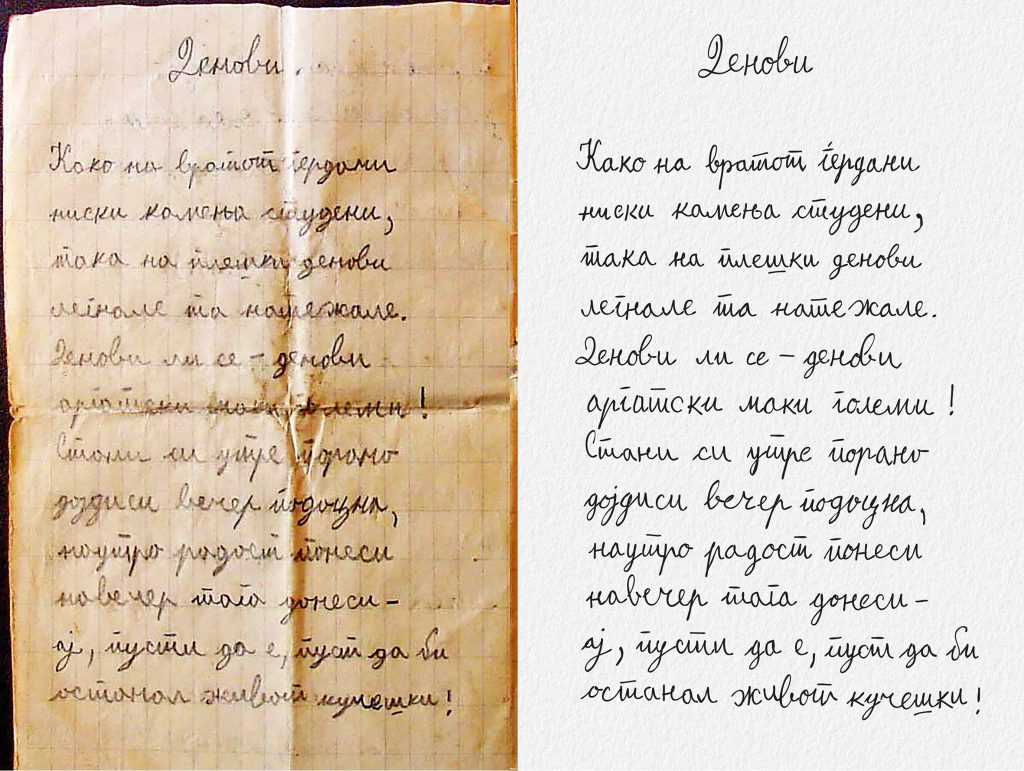 Денови.
Како на вратот ѓердани
ниски камења студени,
така на плешки денови
легнале та натежале.
Денови ли се – денови
аргатски маки големи!
Стани си утре порано
дојдиси вечер подоцна,
наутро радост понеси
навечер тага донеси –
ај, пусти да е, пуст да би
останал живот кучешки!
Денови
Како на вратот ѓердани
ниски камења студени,
така на плешки денови
легнале та натежале.
Денови ли се – денови
аргатски маки големи!
Стани си утре порано
дојдиси вечер подоцна,
наутро радост понеси
навечер тага донеси –
ај, пусти да е, пуст да би
останал живот кучешки!